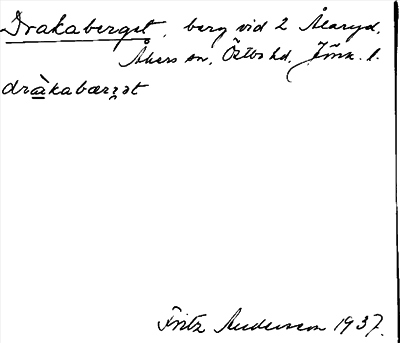 Drakaberget, berg vid 2 Ålaryd,
Åkers sn, Östbo hd, Jönk. l.
dràkabærʒ̣ət
Fritz Anderson 1937.